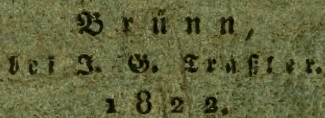 Brünn,
bei J. G. Traßler.
1822.